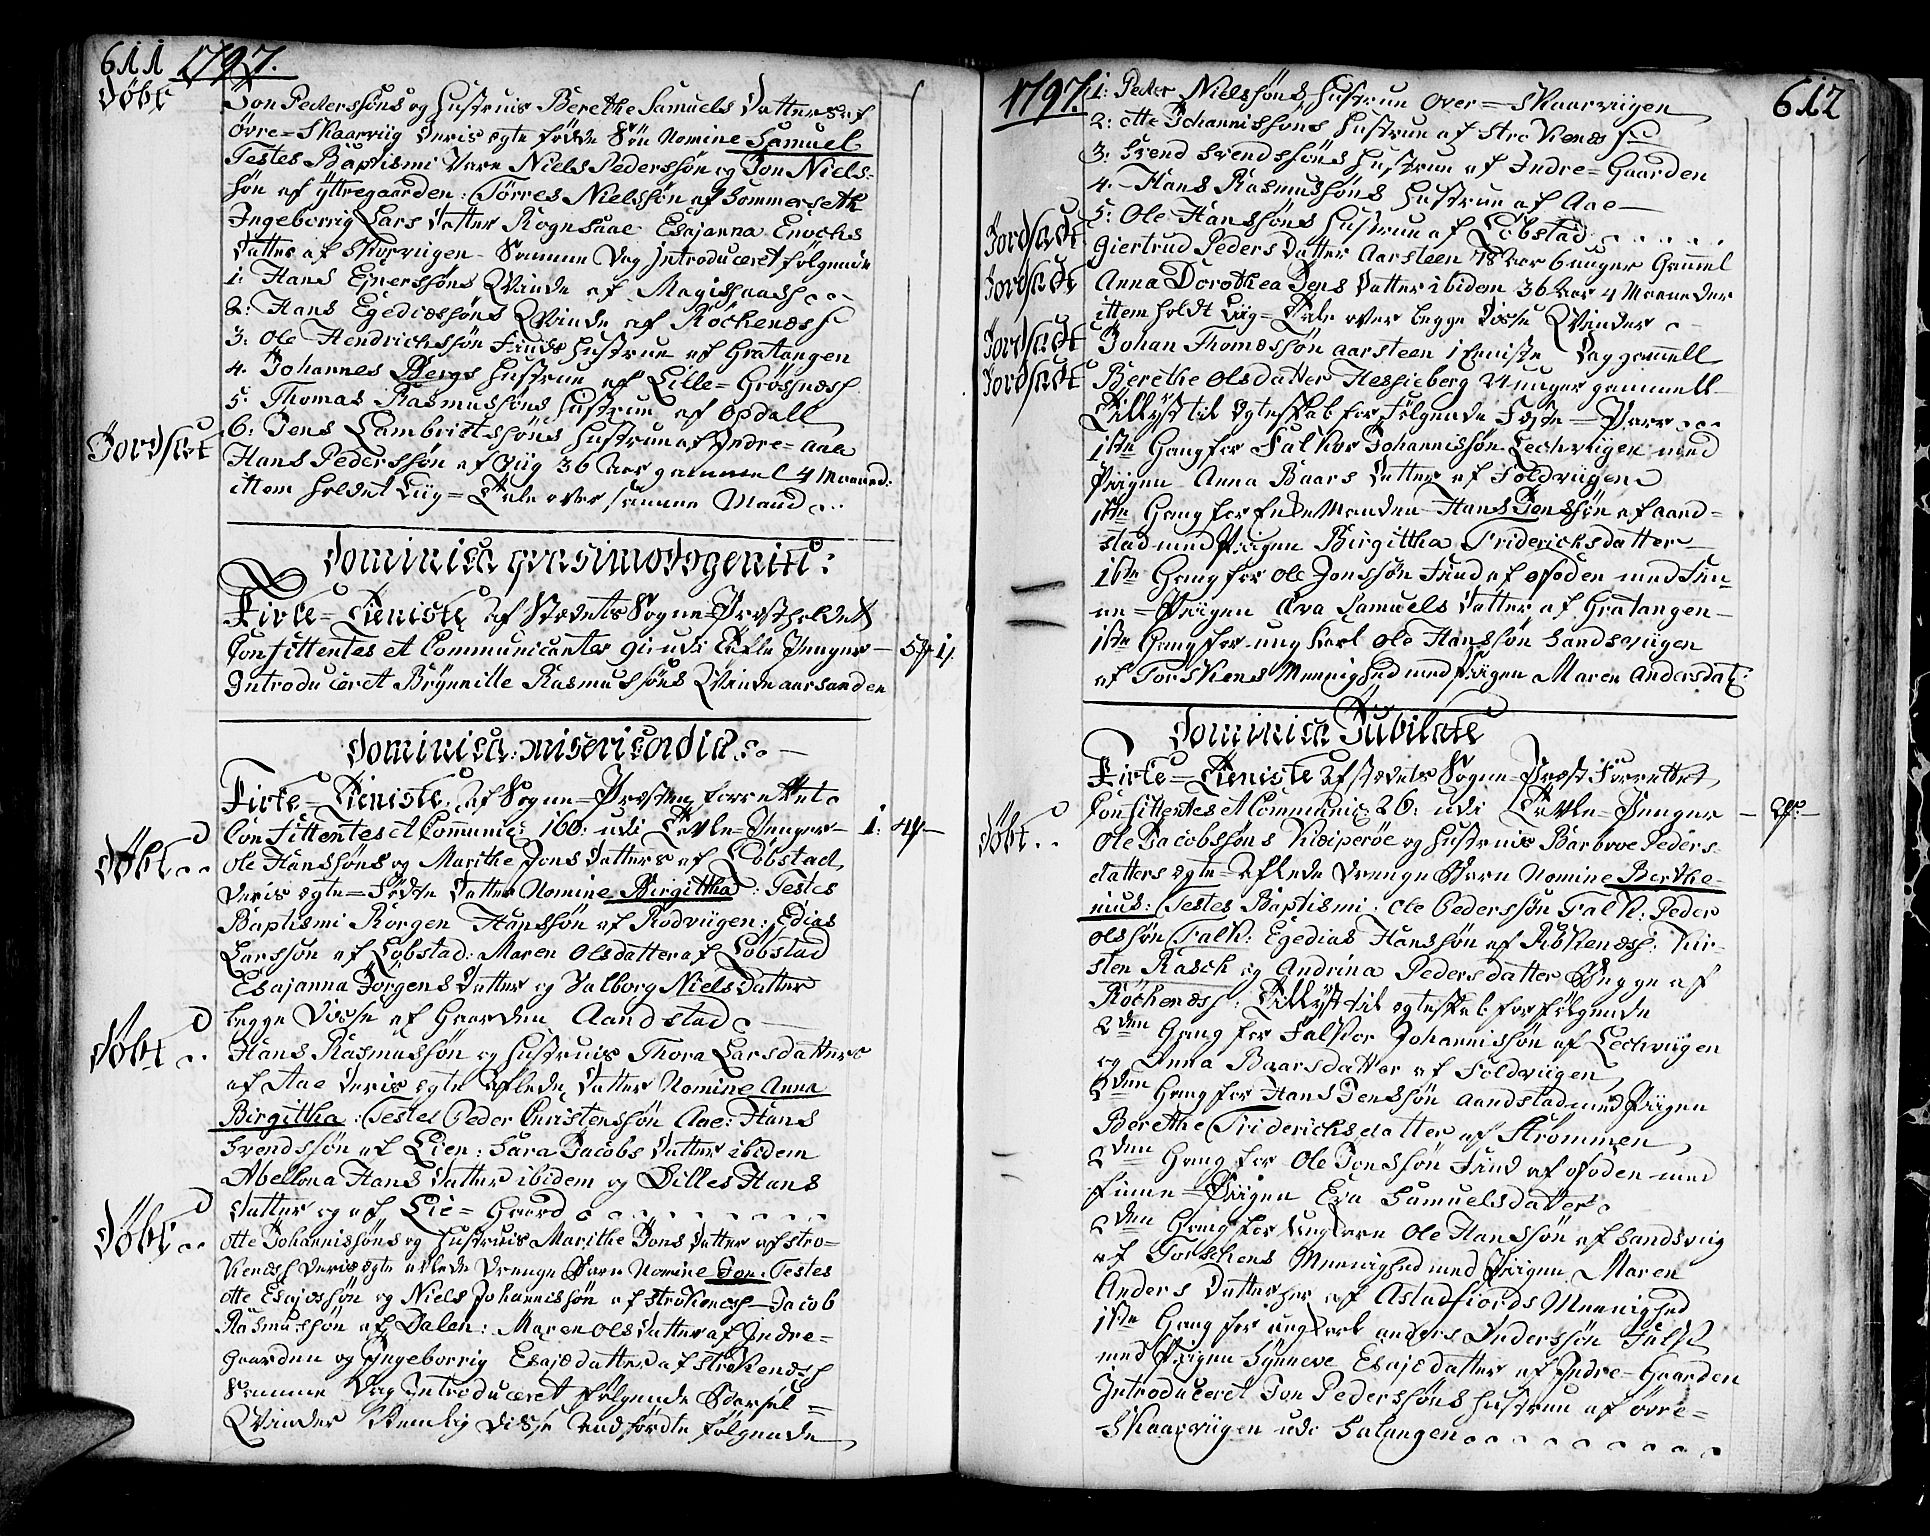 611 1797.
Døbt
Jon Pederssøns og Hustruis Berethe Samuels Datters af
Øvre=Skaarviig deris ægte fødde Søn Nomine Samuel
Testes Baptismi Vare Niels Pederssøn og Jon Niels-
søn af Yttregaarden: Törres Nielssøn af Sommerseth
Ingeborrig Lars Datter Rognsaae Esajanna Enochs
Datter af Skorviigen - Samme Dag Introduceret følgende
1: Hans Ejnerssøns Qvinde af
2: Hans Egediæssøns Qvinde af Röchenæss
3: Ole Hendrichssøn Finds Hustrue af Gratangen
4. Johannes Bergs Hustrue af Lille=Grösnæss
5. Thomas Rasmussøns Hustrue af Opdall
6: Jens Lambrictssøns Hustrue af Indre=Aae
Jordsat
Hans Pederssøn af Viig 36 Aar gammel 4 Maaned:
ittem holdet Liig=Tale over samme Mand
Dominica quasimodogeniti:
Kirke=Tieniste af Stedets Sogne=Præst holdet
Confittentes et Communicantes 91: udi Tafle Penger
Introduceret Brynnille Rasmussøns Qvinde Aarsanden
Dominica: misericordia
Kirke=Tieniste af Sogne=Præsten forrettet
Confittentes et Communic: 160: udi Tavle=Penger - 1:
Døbt
Ole Hanssøns og Marithe Jons Datters af Löbstad
deris ægte=Födte Datter Nomine Birgitha: Testes
Baptismi Hanssøn af Rodviigen: Edias
Larssøn af Löbstad: Maren Olsdatter af Löbstad
Esajanna Jörgens Datter og Valborg Niels Datter
begge disse af Gaarden Aandstad
Døbt
Hans Rasmussøn og Hustruis Thora Larsdatters
af Aae deris ægte Aflede Datter Nomine Anna
Birgitha: Testes Peder Christenssøn Aae: Hans
Svendssøn af Lien: Sara Jacobs Datter ibidem
Abellona Hans Datter ibidem og Dilles Hans
Datter og af Lie=Gaard
Døbt
Otte Johannissøns og Hustruis Marithe Jons Datter af Stro-
kenæss deris ægte aflede Drenge Barn Nomine Jon: Testes
Otte Esajæssøn og Niels Johannissøn af Strokenæss Jacob
Rasmussøn af Dalen: Maren Ols Datter af Indre=
Gaarden og Ingeborrig Esajædatter af Strokenæss
Samme Dag Introduceret følgende Barsel=
Qvinder Nemlig disse Anførdte følgende
1797. 612
1: Peder Nielssøns Hustrue Over=Skaarviigen
2: Otte Johannissøns Hustrue af Strokenæss
3: Svend Svendssøns Hustrue af Indre=Gaarden
4. Hans Rasmussøns Hustrue af Aae
5: Ole Hanssøns Hustrue af Löbstad
Jordsadt
Giertrud Peders Datter Aarsteen 78 Aar 6 uger Gamel
Jordsadt
Anna Dorothea Jens Datter ibidem 36 Aar 4 Maaneder
ittem holdt Liig=Tale over begge disse Qvinder
Jordsadt
Johan Thomæssøn Aarsteen Dag gammell
Jordsadt
Berethe Olsdatter Hessieberg uger gammell
Tillyst til Ægteskab for Følgende Fæste=Parr
1ste Gang for Falkor Johannissøn Lechviigen med
Piigen Anna Baars Datter af Foldviigen
1ste Gang for Enke Manden Hans Jenssøn af Aand=
stad med Piigen Birgittha Fridericksdatter
1ste Gang for Ole Jonssøn Find af Ofoden med Fin-
ne=Piigen Eva Samuels Datter af Gratangen
1ste Gang for ung karl Ole Hanssøn Sandsviigen
af Torskens Mennighed med Piigen Maren Andersdat:
Dominica Jubilate
Kirke=Tieniste af Stedets Sogne=Præst Forrettet
Confittentes et Communic: 26: udi Tavle=Penger
Døbt
Ole Jacobssøns Kiæiperöe og Hustruis Barbroe Peders-
datters ægte=Aflede Drenge Barn Nomine Berthe=
nius: Testes Baptismi: Ole Pederssøn Falk: Peder
Olssøn Falk: Egedias Hanssøn af Rökenæss: Kir-
sten Rasch og Andrina Pedersdatter Begge af
Röchenæss: Tillyst til ægteskab for følgende
2den Gang for Falkor Johannissøn af Lechviigen
og Anna Baarsdatter af Foldviigen
2den Gang for Hans Jenssøn Aandstad med Piigen
Berethe Fridericksdatter af Strømmen
2den Gang for Ole Jonssøn Find af Ofoden med
Finne=Piigen Eva Samuelsdatter
2den Gang for Ungkarl Ole Hanssøn af Sandsviig
af Torschens Mennighed med Piigen Maren
Anders Datter her af Astadfiords Mennighed
1ste Gang for ungkarl Anders Anderssøn Falk
med Piigen Synneve Esajædatter af Indre-Gaarden
Introduceret Jon Pederssøns Hustrue af Øvre-
Skaarviigen udi Salangen